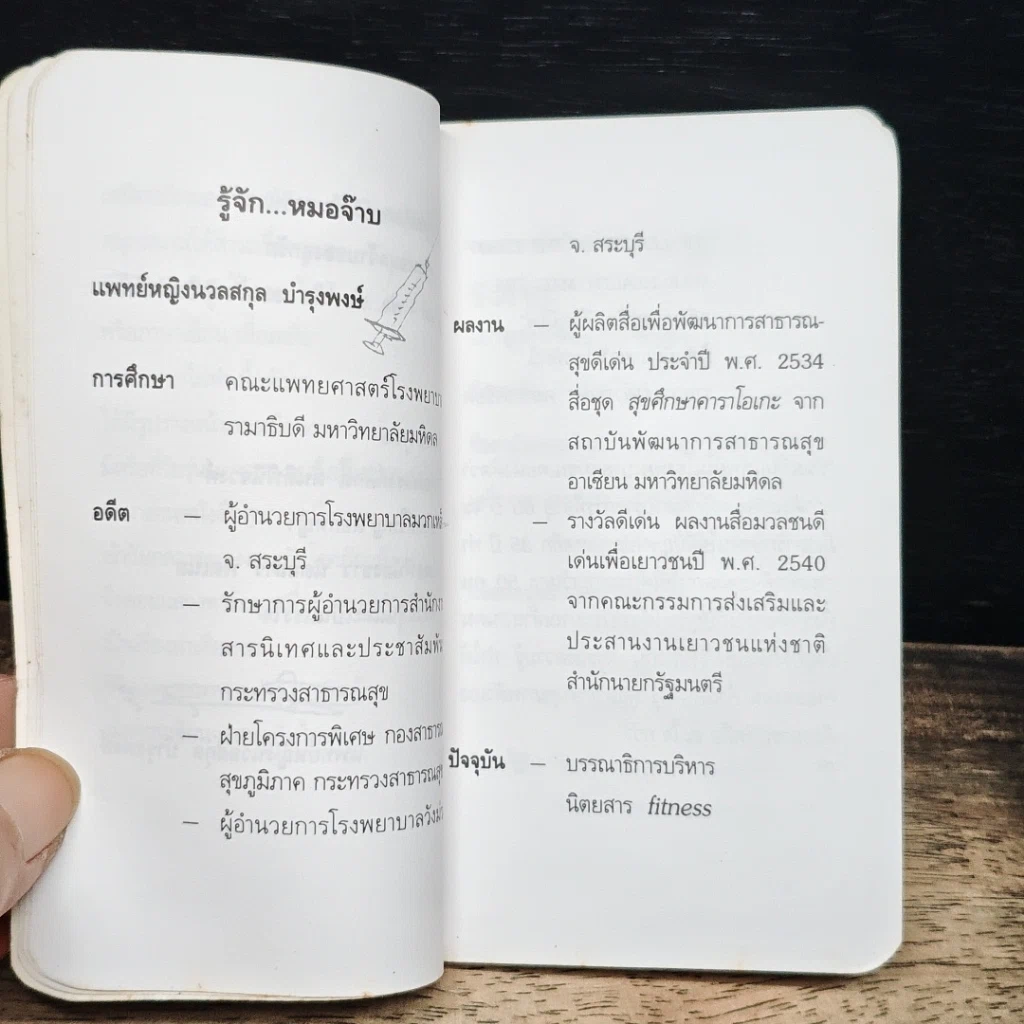 รู้จัก...หมอจ๊าบ
แพทย์หญิงนวลสกุล บำรุงพงษ์
การศึกษา คณะแพทยศาสตร์โรงพยาบา
รามาธิบดี มหาวิทยาลัยมหิดล
อดีต – ผู้อำนวยการโรงพยาบาลมวกเหล็
จ. สระบุรี
– รักษาการผู้อำนวยการสำนักงา
สารนิเทศและประชาสัมพัน
กระทรวงสาธารณสุข
– ฝ่ายโครงการพิเศษ กองสาธารณ
สุขภูมิภาค กระทรวงสาธารณสุข
– ผู้อำนวยการโรงพยาบาลวังม่ว
จ. สระบุรี
ผลงาน – ผู้ผลิตสื่อเพื่อพัฒนาการสาธารณ-
สุขดีเด่น ประจำปี พ.ศ. 2534
สื่อชุด สุขศึกษาคาราโอเกะ จาก
สถาบันพัฒนาการสาธารณสุข
อาเซียน มหาวิทยาลัยมหิดล
– รางวัลดีเด่น ผลงานสื่อมวลชนดี
เด่นเพื่อเยาวชนปี พ.ศ. 2540
จากคณะกรรมการส่งเสริมและ
ประสานงานเยาวชนแห่งชาติ
สำนักนายกรัฐมนตรี
ปัจจุบัน – บรรณาธิการบริหาร
นิตยสาร fitness